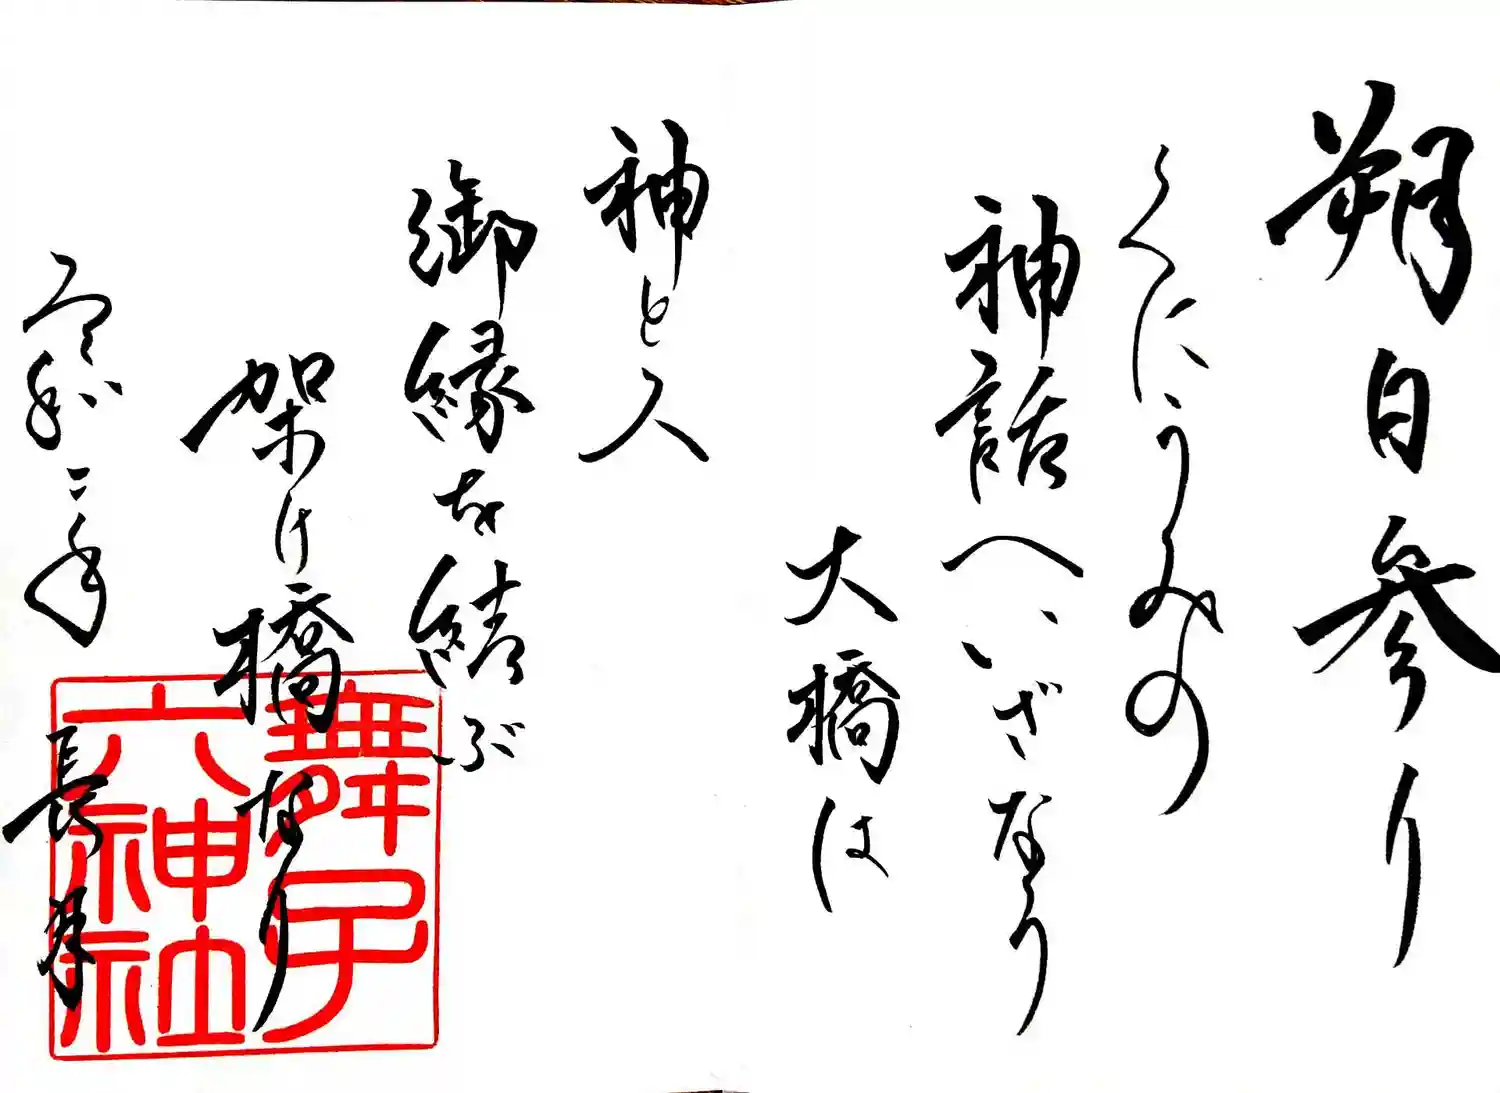 朔日参り
くにうみの
神話へいざなう
大橋は
神と人
御縁を結ぶ
架け橋なり
令和二年
長月
舞子
六神社